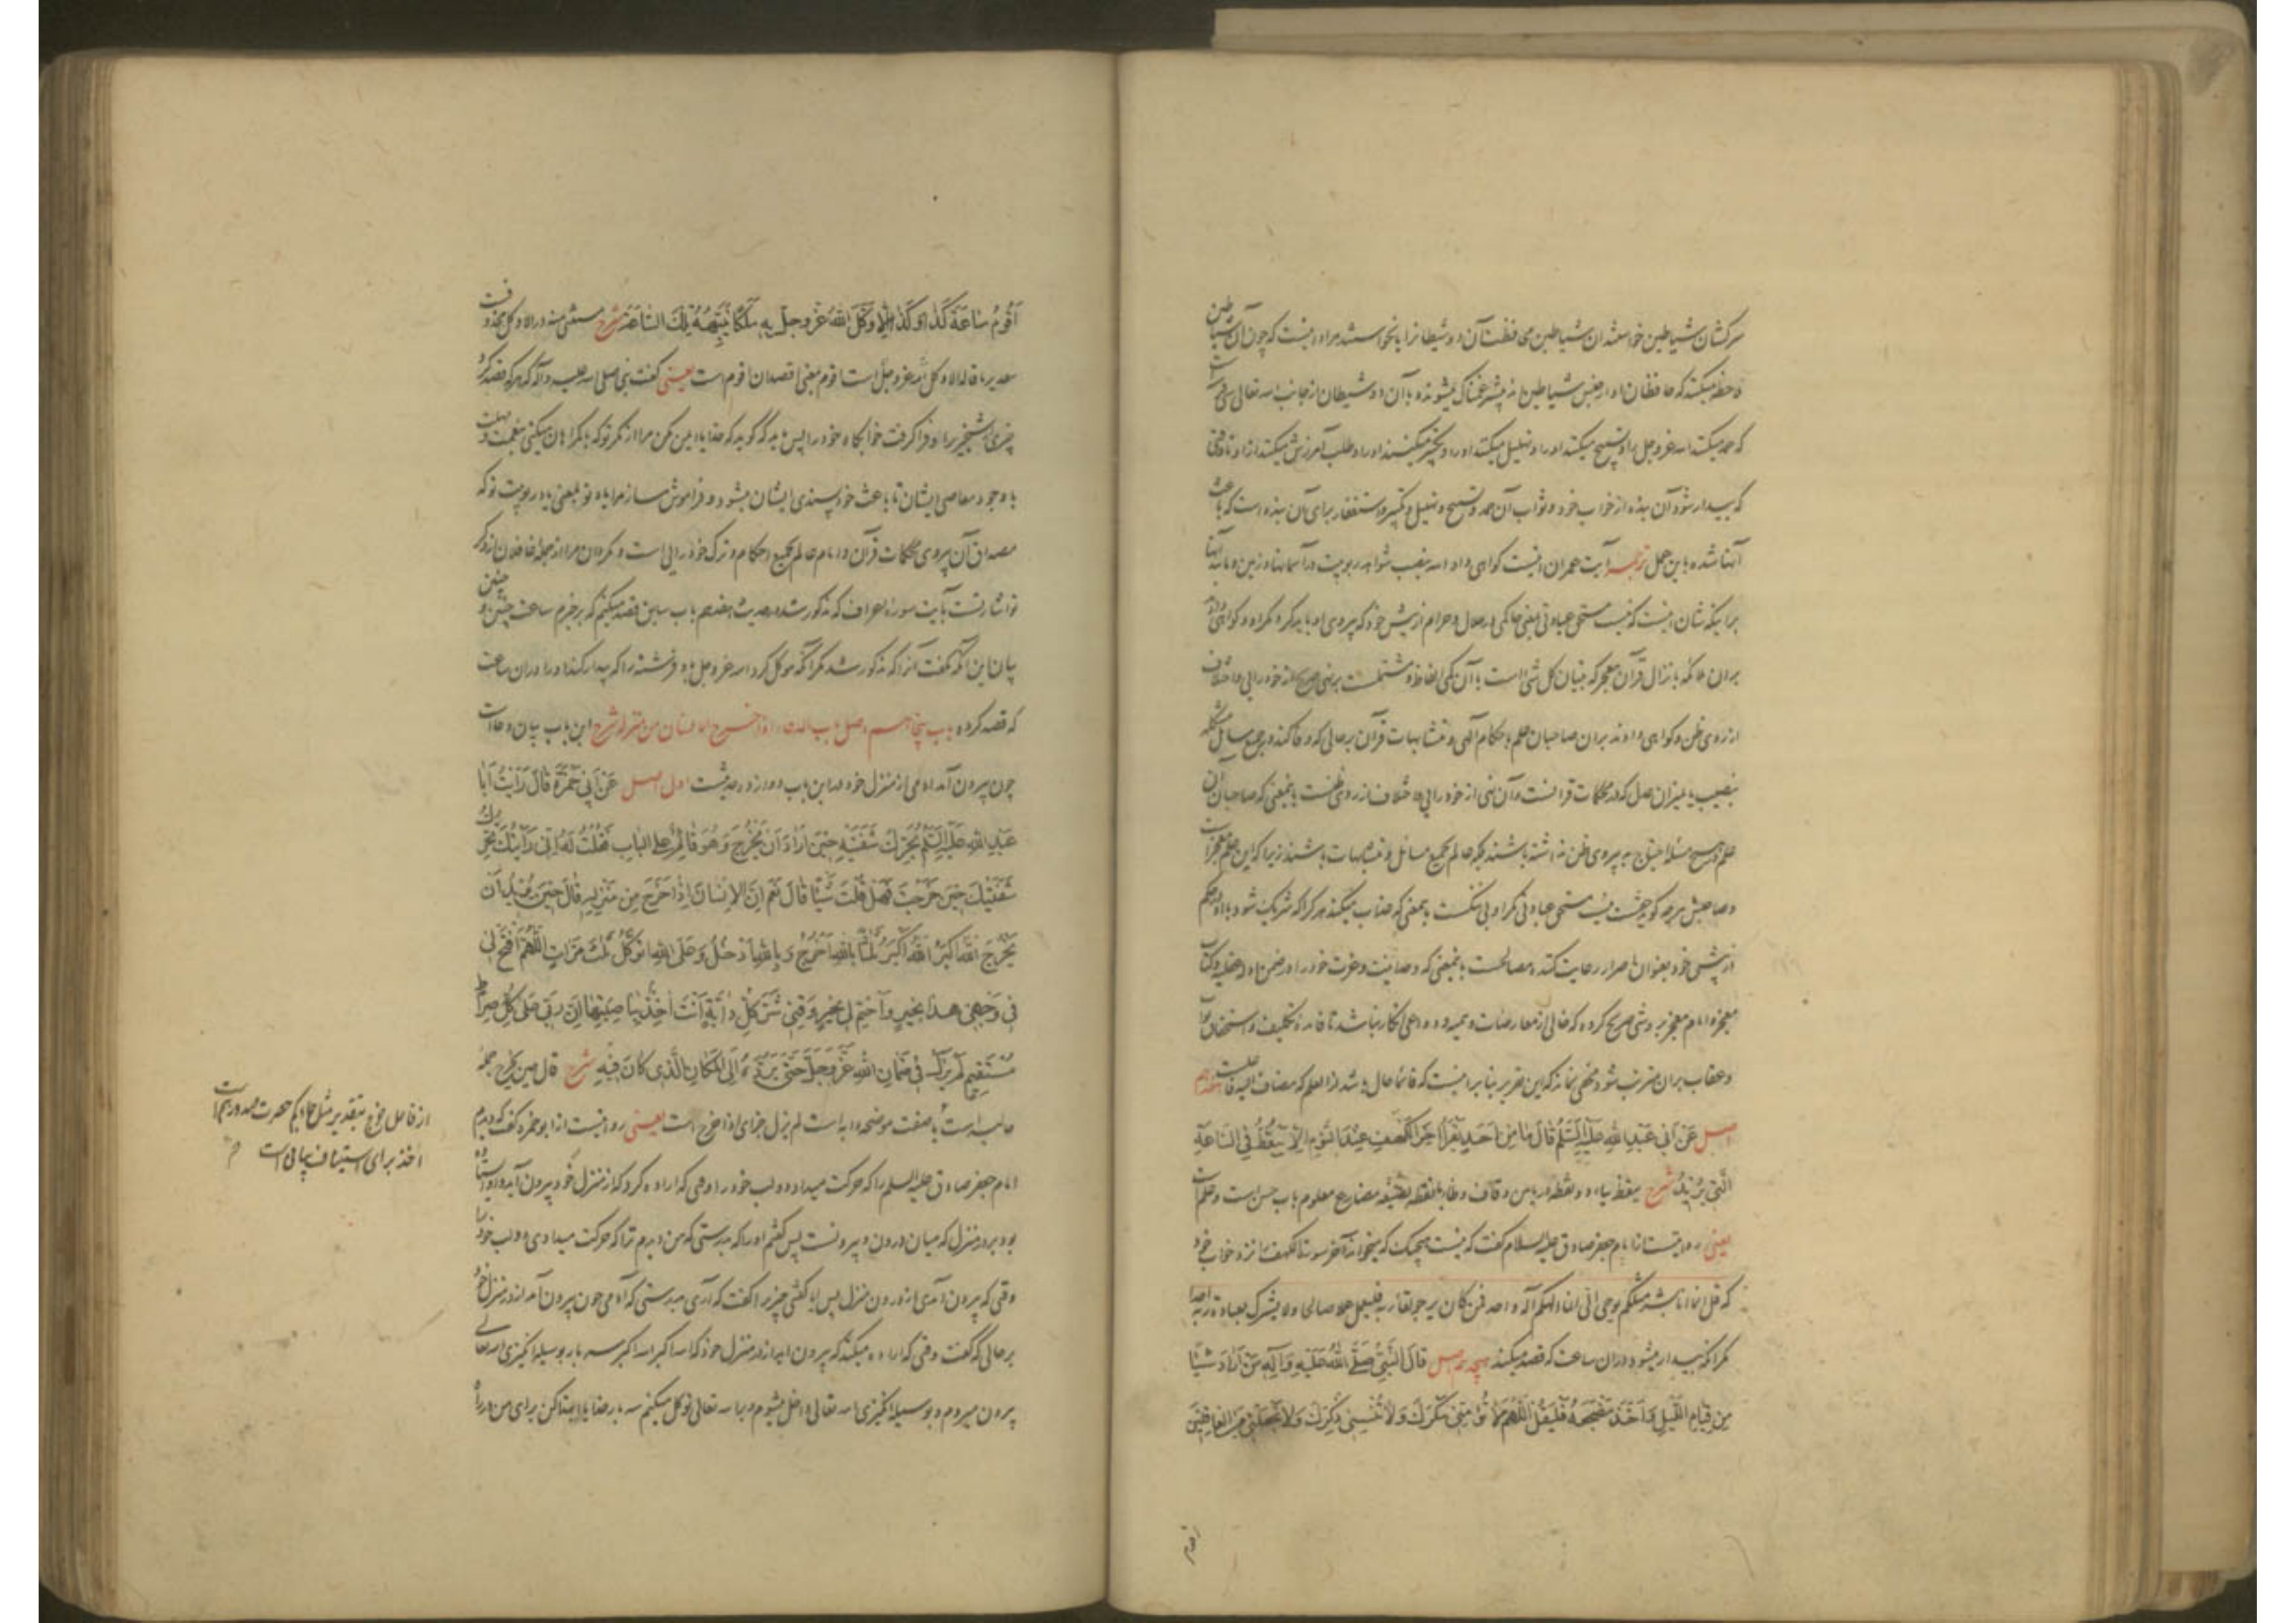 سرکشان شیاطین خواستند آن شیاطین محافظت آن دو شیطانرا یا نخواستند مراد اینست که چون آن شیاطین
ملاحظه میکنند که حافظان او از جنس شیاطین اند بیشتر غمناک میشوند و آن دو شیطان از جانب الله تعالی
که حمد میکنند الله عز و جل را و تسبیح میکنند او را و تهلیل میکنند او را و تکبیر میکنند او را و طلب آمرزش میکنند ازو تا وقتی
که بیدار شود آن بنده از خواب خود و ثواب آن حمد و تسبیح و تهلیل و تکبیر و استغفار برای آن بنده است که باعث
آنها شده باین عمل ترجمه آیت عمران اینست گواهی داد الله بنصب شواهد ربوبیت در آسمانها و زمین و مابین آنها
برای یکه شان اینست که نیست مستحق عبادتی یعنی حاکمی در حلال و حرام از پیش خود که پیروی او باید کرد مگر او و گواهی دادند
بر آن ملائکه بانزال قرآن معجز که تبیان کل شیء است بآن یکی الفاظ و مشتملست بر نهی صریح از خودرایی و اختلاف
از روی ظن و گواهی دادند بر آن صاحبان علم باحکام الهی و متشابهات قرآن بر حالی که وفا کننده در جمیع مسائل مشکله
بنصیب با میزان عدل که در محکمات قرآنست و آن نهی از خودرایی و اختلاف از روی ظنست باینمعنی که صاحبان آن
علم در هیچ مسئله احتیاج به پیروی ظن نداشته باشند بلکه عالم بجمیع مسائل و متشابهات باشند زیرا که این علم معجزات
و صاحبش هر چه گوید حقست نیست مستحق عبادتی مگر او بی ننگست بمعنی که عذاب میکند هر که را که شریک شود با او در حکم
از پیش خود بعنوان اصرار رعایت کننده مصالحست باینمعنی که وحدانیت و عزت خود را در ضمن ادله عقلیه و کتاب
معجز و امام معجز بروشی صریح کرده که خالی از معارضات وهمیه و دواعی انکار نباشد تا فایده تکلیف و استحقاق ثواب
و عقاب بر آن مترتب شود و مخفی نماند که این تقریر بنابر اینست که قائما حال باشد از اولوا العلم که مضاف الیه فاعلست هفدهم
اصل عَن اَبی عَبدِاللهِ عَلَیهِ السَّلَمُ قَالَ مَا مِن اَحَدٍ یَقرَأُ اخِرَ الکَهفِ عِندَ النَّومِ اِلّا تَیَقَّظَ فِی السَّاعَةِ
الَّتی یُریدُ شرح تیقظ بیاء دو نقطه در پایین و قاف و ظاء بانقطه بصیغه مضارع معلوم باب حسن است و علم است
یعنی روایتست از امام جعفر صادق علیه السلام گفت که نیست هیچیک که میخواند آخر سوره کهف را نزد خواب خود
که قل انما انا بشر مثلکم یوحی الی انما الهکم اله واحد فمن کان یرجو لقاء ربه فلیعمل عملا صالحا ولا یشرک بعبادة ربه احدا
مگر آنکه بیدار میشود در آن ساعت که قصد میکند هیجدهم اصل قَالَ النَّبیُّ صَلَّی اللهُ عَلَیهِ وَ آلِهِ مَن اَرَادَ شَیئًا
مِن قِیَامِ اللَّیلِ وَ اَخَذَ مَضجَعَهُ فَلیَقُل اَللّهُمَّ لَا تُؤمِنّی مَکرَکَ وَلَا تُنسِنی ذِکرَکَ وَلَا تَجعَلنی مِنَ الغَافِلینَ
اقوم
اَقُومُ سَاعَةَ کَذَا وَ کَذَا اِلَّا وَکَّلَ اللهُ عَزَّ وَ جَلَّ بِهِ مَلَکًا یُنَبِّهُهُ تِلکَ السَّاعَةَ شرح مستثنی منه در الا وکل محذوفست
بتقدیر ما قاله الا وکل الله عز و جل است اقوم بمعنی اقصد ان اقوم است یعنی گفت نبی صلی الله علیه و آله که هر که قصد کرد
چیزی از شبخیزی را و فرا گرفت خوابگاه خود را پس باید که گوید که خدایا ایمن مکن مرا از مکر تو که با گمراهان میکنی بنعمت و مهلت
با وجود معاصی ایشان تا باعث خودپسندی ایشان میشود و فراموش مساز مرا یاد تو یعنی یاد ربوبیت تو که
مصداق آن پیروی محکمات قرآن و امام عالم بجمیع احکام و ترک خودرایی است و مگردان مرا از جمله غافلان از ذکر
تو اشارتست بآیت سوره اعراف که مذکور شد در حدیث هفدهم باب سابق قصد میکنم که برخیزم ساعت چنین و چنین
بیان این آنکه نگفت آنرا که مذکور شد مگر آنکه موکل کرد الله عز و جل باو فرشته را که بیدار کند او را در آن ساعت
که قصد کرده باب پنجاهم اصل باب الدعاء اذا خرج الانسان من منزله شرح این باب بیان دعاست
چون بیرون آمد آدمی از منزل خود در این باب دوازده حدیثست اول اصل عَن اَبی حَمزَةَ قَالَ رَاَیتُ اَبَا
عَبدِاللهِ عَلَیهِ السَّلَمُ یُحَرِّکُ شَفَتَیهِ حینَ اَرَادَ اَن یَخرُجَ وَ هُوَ قَائِمٌ عَلَی البَابِ فَقُلتُ لَهُ اِنّی رَاَیتُکَ تُحَرِّکُ
شَفَتَیکَ حینَ خَرَجتَ فَهَل قُلتَ شَیئًا قَالَ نَعَم اِنَّ الاِنسَانَ اِذَا خَرَجَ مِن مَنزِلِهِ قَالَ حینَ یُریدُ اَن
یَخرُجَ اَللهُ اَکبَرُ اَللهُ اَکبَرُ ثَلٰثًا بِاللهِ اَخرُجُ وَ بِاللهِ اَدخُلُ وَ عَلَی اللهِ اَتَوَکَّلُ ثَلٰثَ مَرَّاتٍ اَللّهُمَّ افتَح لی
فی وَجهی هَذَا بِخَیرٍ وَ اختِم لی بِخَیرٍ وَ قِنی شَرَّ کُلِّ دَابَّةٍ اَنتَ اخِذٌ بِنَاصِیَتِهَا اِنَّ رَبّی عَلَی کُلِّ صِرَاطٍ
مُستَقیمٍ لَم یَزَل فی ضَمَانِ اللهِ عَزَّ وَ جَلَّ حَتّی یَرُدَّهُ اِلَی المَکَانِ الَّذی کَانَ فیهِ شرح قال حین یخرج جمله
حالیه است یا صفت موضحه دابه است لم یزل جزای اذا خرج است یعنی روایتست از ابوحمزه گفت که دیدم
امام جعفر صادق علیه السلم را که حرکت میداد دو لب خود را وقتی که اراده کرد که از منزل خود بیرون آید و او ایستاده
بود بر در منزل که میان درون و بیرونست پس گفتم او را که بدرستی که من دیدم ترا که حرکت میدادی دو لب خود را
وقتی که بیرون آمدی از درون منزل پس آیا گفتی چیزی را گفت که آری بدرستی که آدمی چون بیرون آمد از در منزل خود
بر حالی که گفت وقتی که اراده میکند که بیرون آید از در منزل خود که الله اکبر الله اکبر سه بار بوسیله انگیزی الله تعالی
بیرون میروم و بوسیله انگیزی الله تعالی داخل میشوم و بر الله تعالی توکل میکنم سه بار خدایا ابتدا کن برای من در راه
از فاعل خرج بتقدیر مثل جاءکم حصرت صدورهم است
اخذ برای استیناف بیانی است